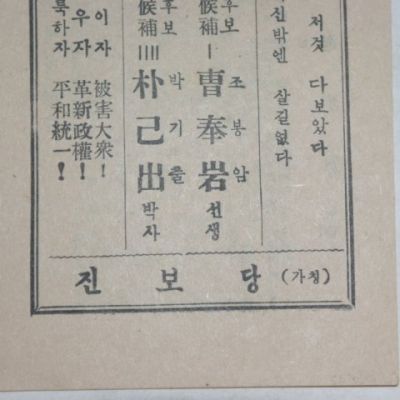 저것 다보았다
신밖엔 살길없다
후보 조봉암
候補 I 曺奉岩 선생
후보 박기출
候補 IIII 朴己出 박사
이자 被害大衆!
우자 革新政權!
북하자 平和統一!
진 보 당 (가칭)